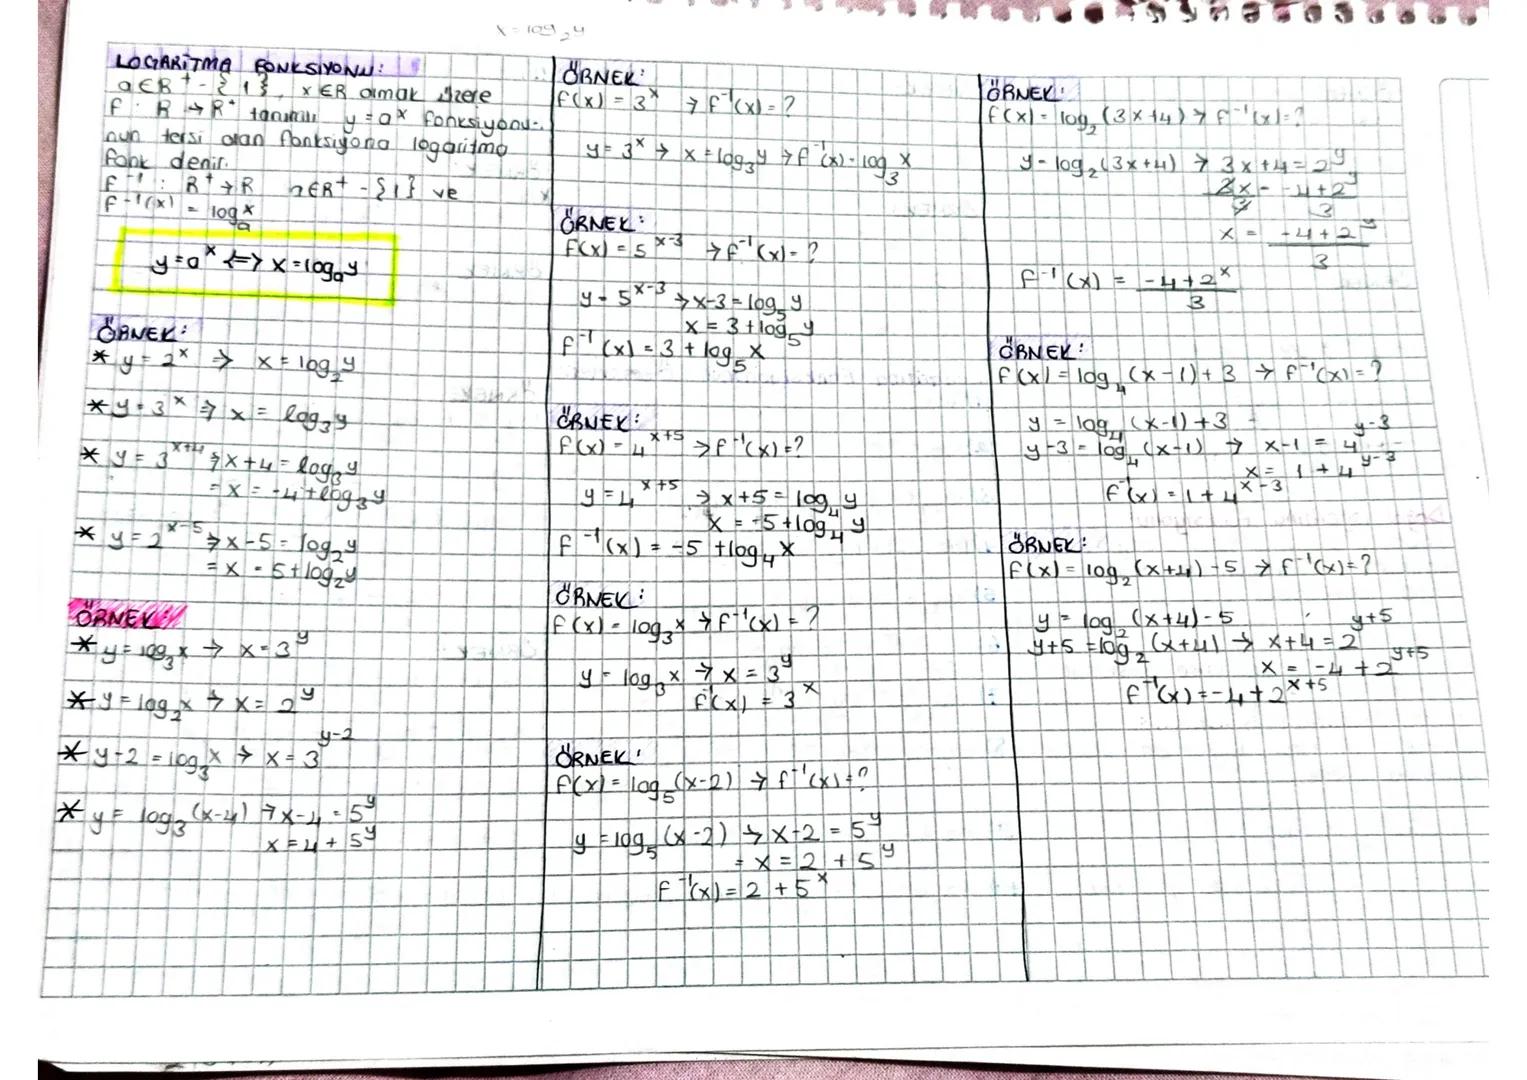 x = log₂y
LOGARİTMA FONKSİYONU:
a∈R⁺ - {1}, x∈R olmak üzere
f: R → R⁺ tanımlı y = aˣ fonksiyonu-
nun tersi olan fonksiyona logaritma
fonk denir.
f⁻¹: R⁺ → R a∈R⁺ - {1} ve
f⁻¹(x) = logₐx
y = aˣ ⟺ x = logₐy
ÖRNEK:
* y = 2ˣ ⇒ x = log₂y
* y = 3ˣ ⇒ x = log₃y
* y = 3ˣ⁺⁴ ⇒ x+4 = log₃y
= x = -4 + log₃y
* y = 2ˣ⁻⁵ ⇒ x-5 = log₂y
= x = 5 + log₂y
ÖRNEK:
* y = log₃x → x = 3^y
* y = log₂x → x = 2^y
* y-2 = log₃x → x = 3^(y-2)
* y = log₃(x-4) → x-4 = 5^y
x = 4 + 5^y
ÖRNEK:
f(x) = 3ˣ → f⁻¹(x) = ?
y = 3ˣ → x = log₃y → f⁻¹(x) = log₃x
ÖRNEK:
f(x) = 5ˣ⁻³ → f⁻¹(x) = ?
y = 5ˣ⁻³ → x-3 = log₅y
x = 3 + log₅y
f⁻¹(x) = 3 + log₅x
ÖRNEK:
f(x) = 4ˣ⁺⁵ → f⁻¹(x) = ?
y = 4ˣ⁺⁵ → x+5 = log₄y
x = -5 + log₄y
f⁻¹(x) = -5 + log₄x
ÖRNEK:
f(x) = log₃x → f⁻¹(x) = ?
y = log₃x → x = 3^y
f⁻¹(x) = 3ˣ
ÖRNEK:
f(x) = log₅(x-2) → f⁻¹(x) = ?
y = log₅(x-2) → x-2 = 5^y
= x = 2 + 5^y
f⁻¹(x) = 2 + 5ˣ
ÖRNEK:
f(x) = log₂(3x+4) → f⁻¹(x) = ?
y = log₂(3x+4) → 3x+4 = 2^y
3x = -4+2^y
3 3
x = -4+2^y
3
f⁻¹(x) = -4+2ˣ
3
ÖRNEK:
f(x) = log₄(x-1)+3 → f⁻¹(x) = ?
y = log₄(x-1)+3
y-3 = log₄(x-1) → x-1 = 4^(y-3)
x = 1 + 4^(y-3)
f⁻¹(x) = 1 + 4ˣ⁻³
ÖRNEK:
f(x) = log₂(x+4)-5 → f⁻¹(x) = ?
y = log₂(x+4)-5
y+5 = log₂(x+4) → x+4 = 2^(y+5)
x = -4 + 2^(y+5)
f⁻¹(x) = -4 + 2ˣ⁺⁵